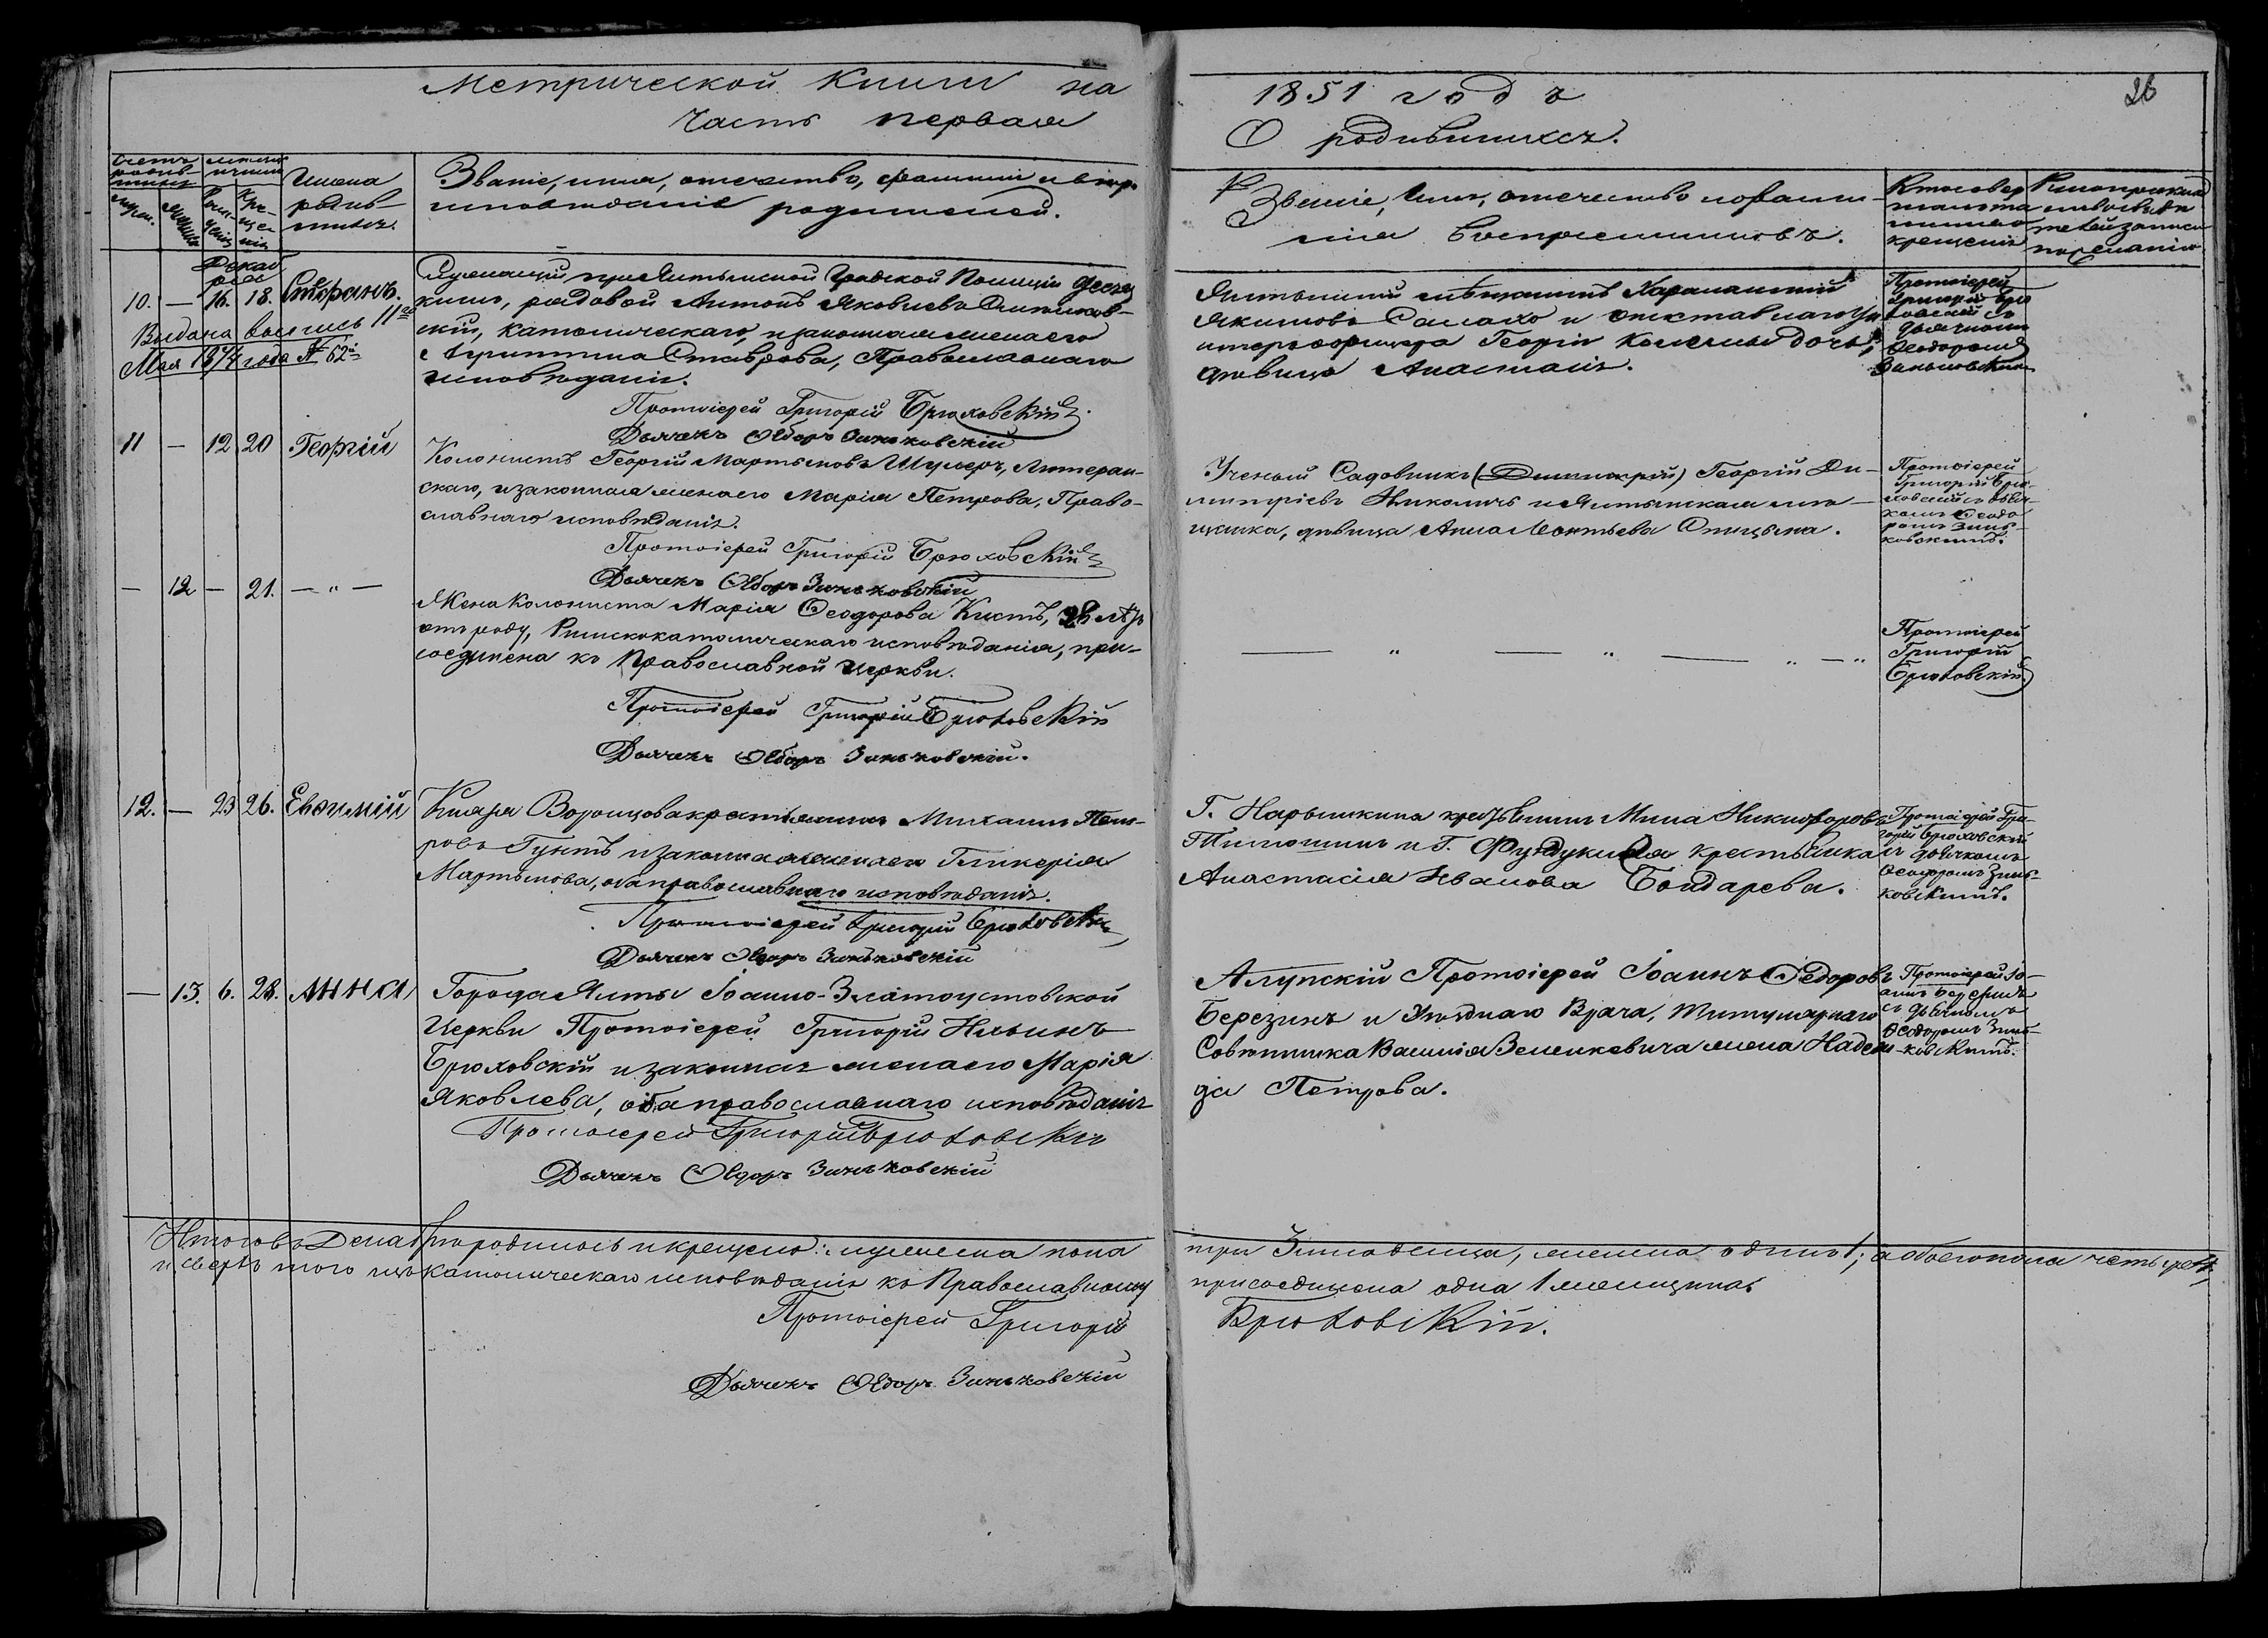 Метрической книги на 1851 годъ
Часть первая О родившихся.
26
Счетъ родив-шихся
муж. женск.
Мѣсяцъ и число
Рож-денія Кре-щенія
Имена родив-шихся.
Званіе, имя, отчество, фамилія и вѣро-
исповѣданіе родителей.
Званіе, имя, отчество и фами-
лія воспріемниковъ.
Кто совер
шалъ та
инство
крещенія
Рукоприклад
ство свидѣ
телей записи
по желанію
Декаб
рѣ
10. — 16. 18. Стефанъ.
Выдана выпись 11го
Мая 1874 года № 62й
Служащій при Ялтинской Градской Полиціи
рядовой Антонъ Яковлевъ
скій, католическаго, и законная жена его
Агриппина Ставрова, Православнаго
исповѣданія.
Протоіерей Григорій Брюховскій
Дьячекъ Ѳедоръ Зиньковскій
Ялтинскій мѣщанинъ Харалампій
Якимовъ и отставнаго Ун
теръ офицера Георгія дочь,
дѣвица Анастасія.
Протоіерей
Григорій Брю
ховскій съ
дьячкомъ
Ѳеодоромъ
Зиньковскимъ
11 — 12 20 Георгій
Колонистъ Георгій Мартыновъ Шумеръ, Лютеран-
скаго, и законная жена его Марія Петрова, Право-
славнаго исповѣданія.
Протоіерей Григорій Брюховскій
Дьячекъ Ѳедоръ Зиньковскій
Ученый Садовникъ Георгій Ди-
митріевъ и Ялтинская мѣ-
щанка, дѣвица Анна Леонтьева Спицына.
Протоіерей
Григорій Брю-
ховскій съ дьяч-
комъ Ѳеодо
ромъ Зинь-
ковскимъ.
— 12 — 21. — „ —
Жена Колониста Марія Ѳеодорова Кистъ, 28 лѣтъ
отъ роду, Римскокатолическаго исповѣданія, при-
соединена къ Православной Церкви.
Протоіерей Григорій Брюховскій
Дьячекъ Ѳедоръ Зиньковскій.
— „ — „ — „ — „
Протоіерей
Григорій
Брюховскій
12. — 23 26. Евѳимій
Князя Воронцова крестьянинъ Михаилъ Пет-
ровъ и законная жена его Гликерія
Мартынова, оба православнаго исповѣданія.
Протоіерей Григорій Брюховскій
Дьячекъ Ѳедоръ Зиньковскій
Г. Нарышкина крестьянинъ Мина Никифоровъ
Тимошинъ и Г. Фундуклея крестьянка
Анастасія Иванова Бондарева.
Протоіерей Гри-
горій Брюховскій
съ дьячкомъ
Ѳеодоромъ Зинь-
ковскимъ.
— 13. 6. 28. Анна
Города Ялты Іоанно-Златоустовской
Церкви Протоіерей Григорій Ильинъ
Брюховскій и законная жена его Марія
Яковлева, оба православнаго исповѣданія
Протоіерей Григорій Брюховскій
Дьячекъ Ѳедоръ Зиньковскій
Алупскій Протоіерей Іоаннъ Ѳедоровъ
Березинъ и Уѣзднаго Врача, Титулярнаго
Совѣтника Василія Зеленкевича жена Надеж
да Петрова.
Протоіерей Іо-
аннъ Березинъ
съ дьячкомъ
Ѳеодоромъ Зинь-
ковскимъ.
Итого въ Декабрѣ родилось и крещено: мужеска пола три 3 младенца, женска одинъ 1; а обоего пола четыре 4,
и сверхъ того изъ католическаго исповѣданія къ Православному присоединена одна 1 женщина.
Протоіерей Григорій Брюховскій.
Дьячекъ Ѳедоръ Зиньковскій